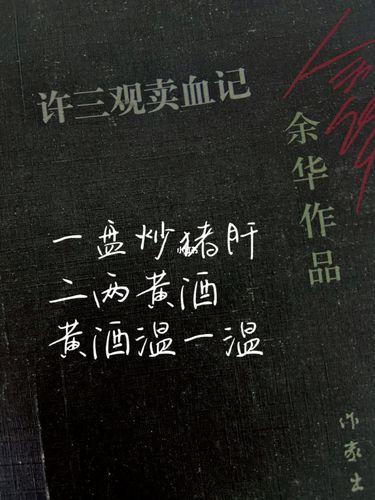 许三观卖血记
余华
余华作品
一盘炒猪肝
二两黄酒
黄酒温一温
作家出